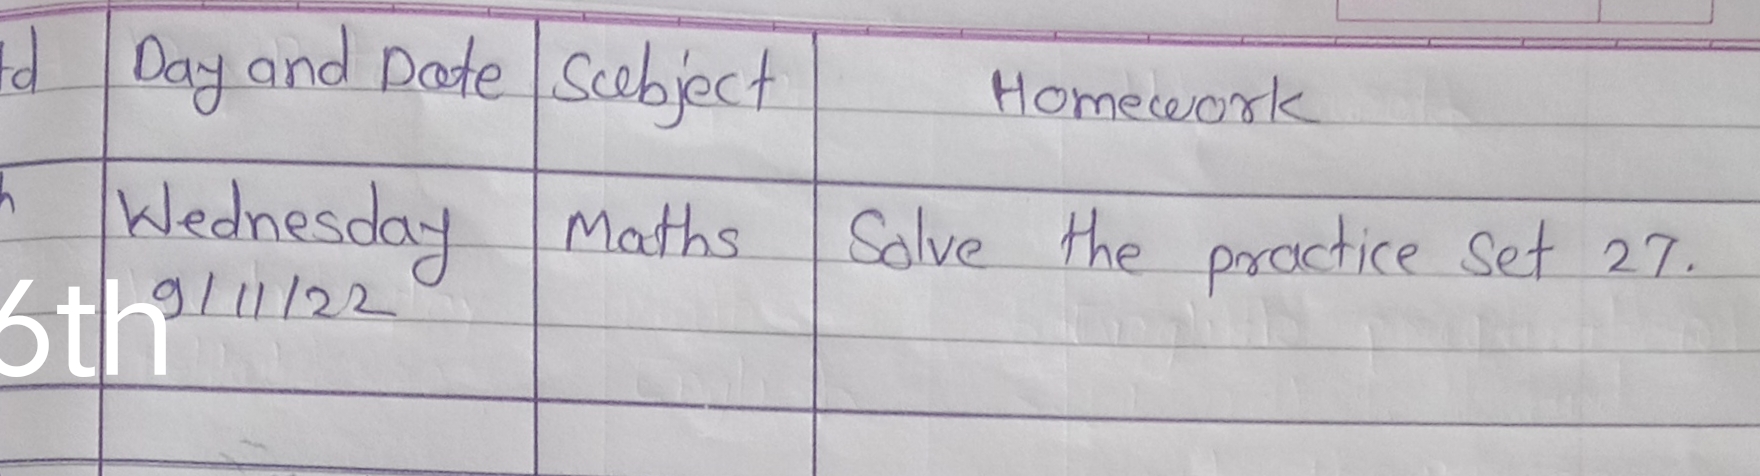 d Day and Date Subject Homework
h Wednesday Maths Solve the practice Set 27.
9/11/22
6th